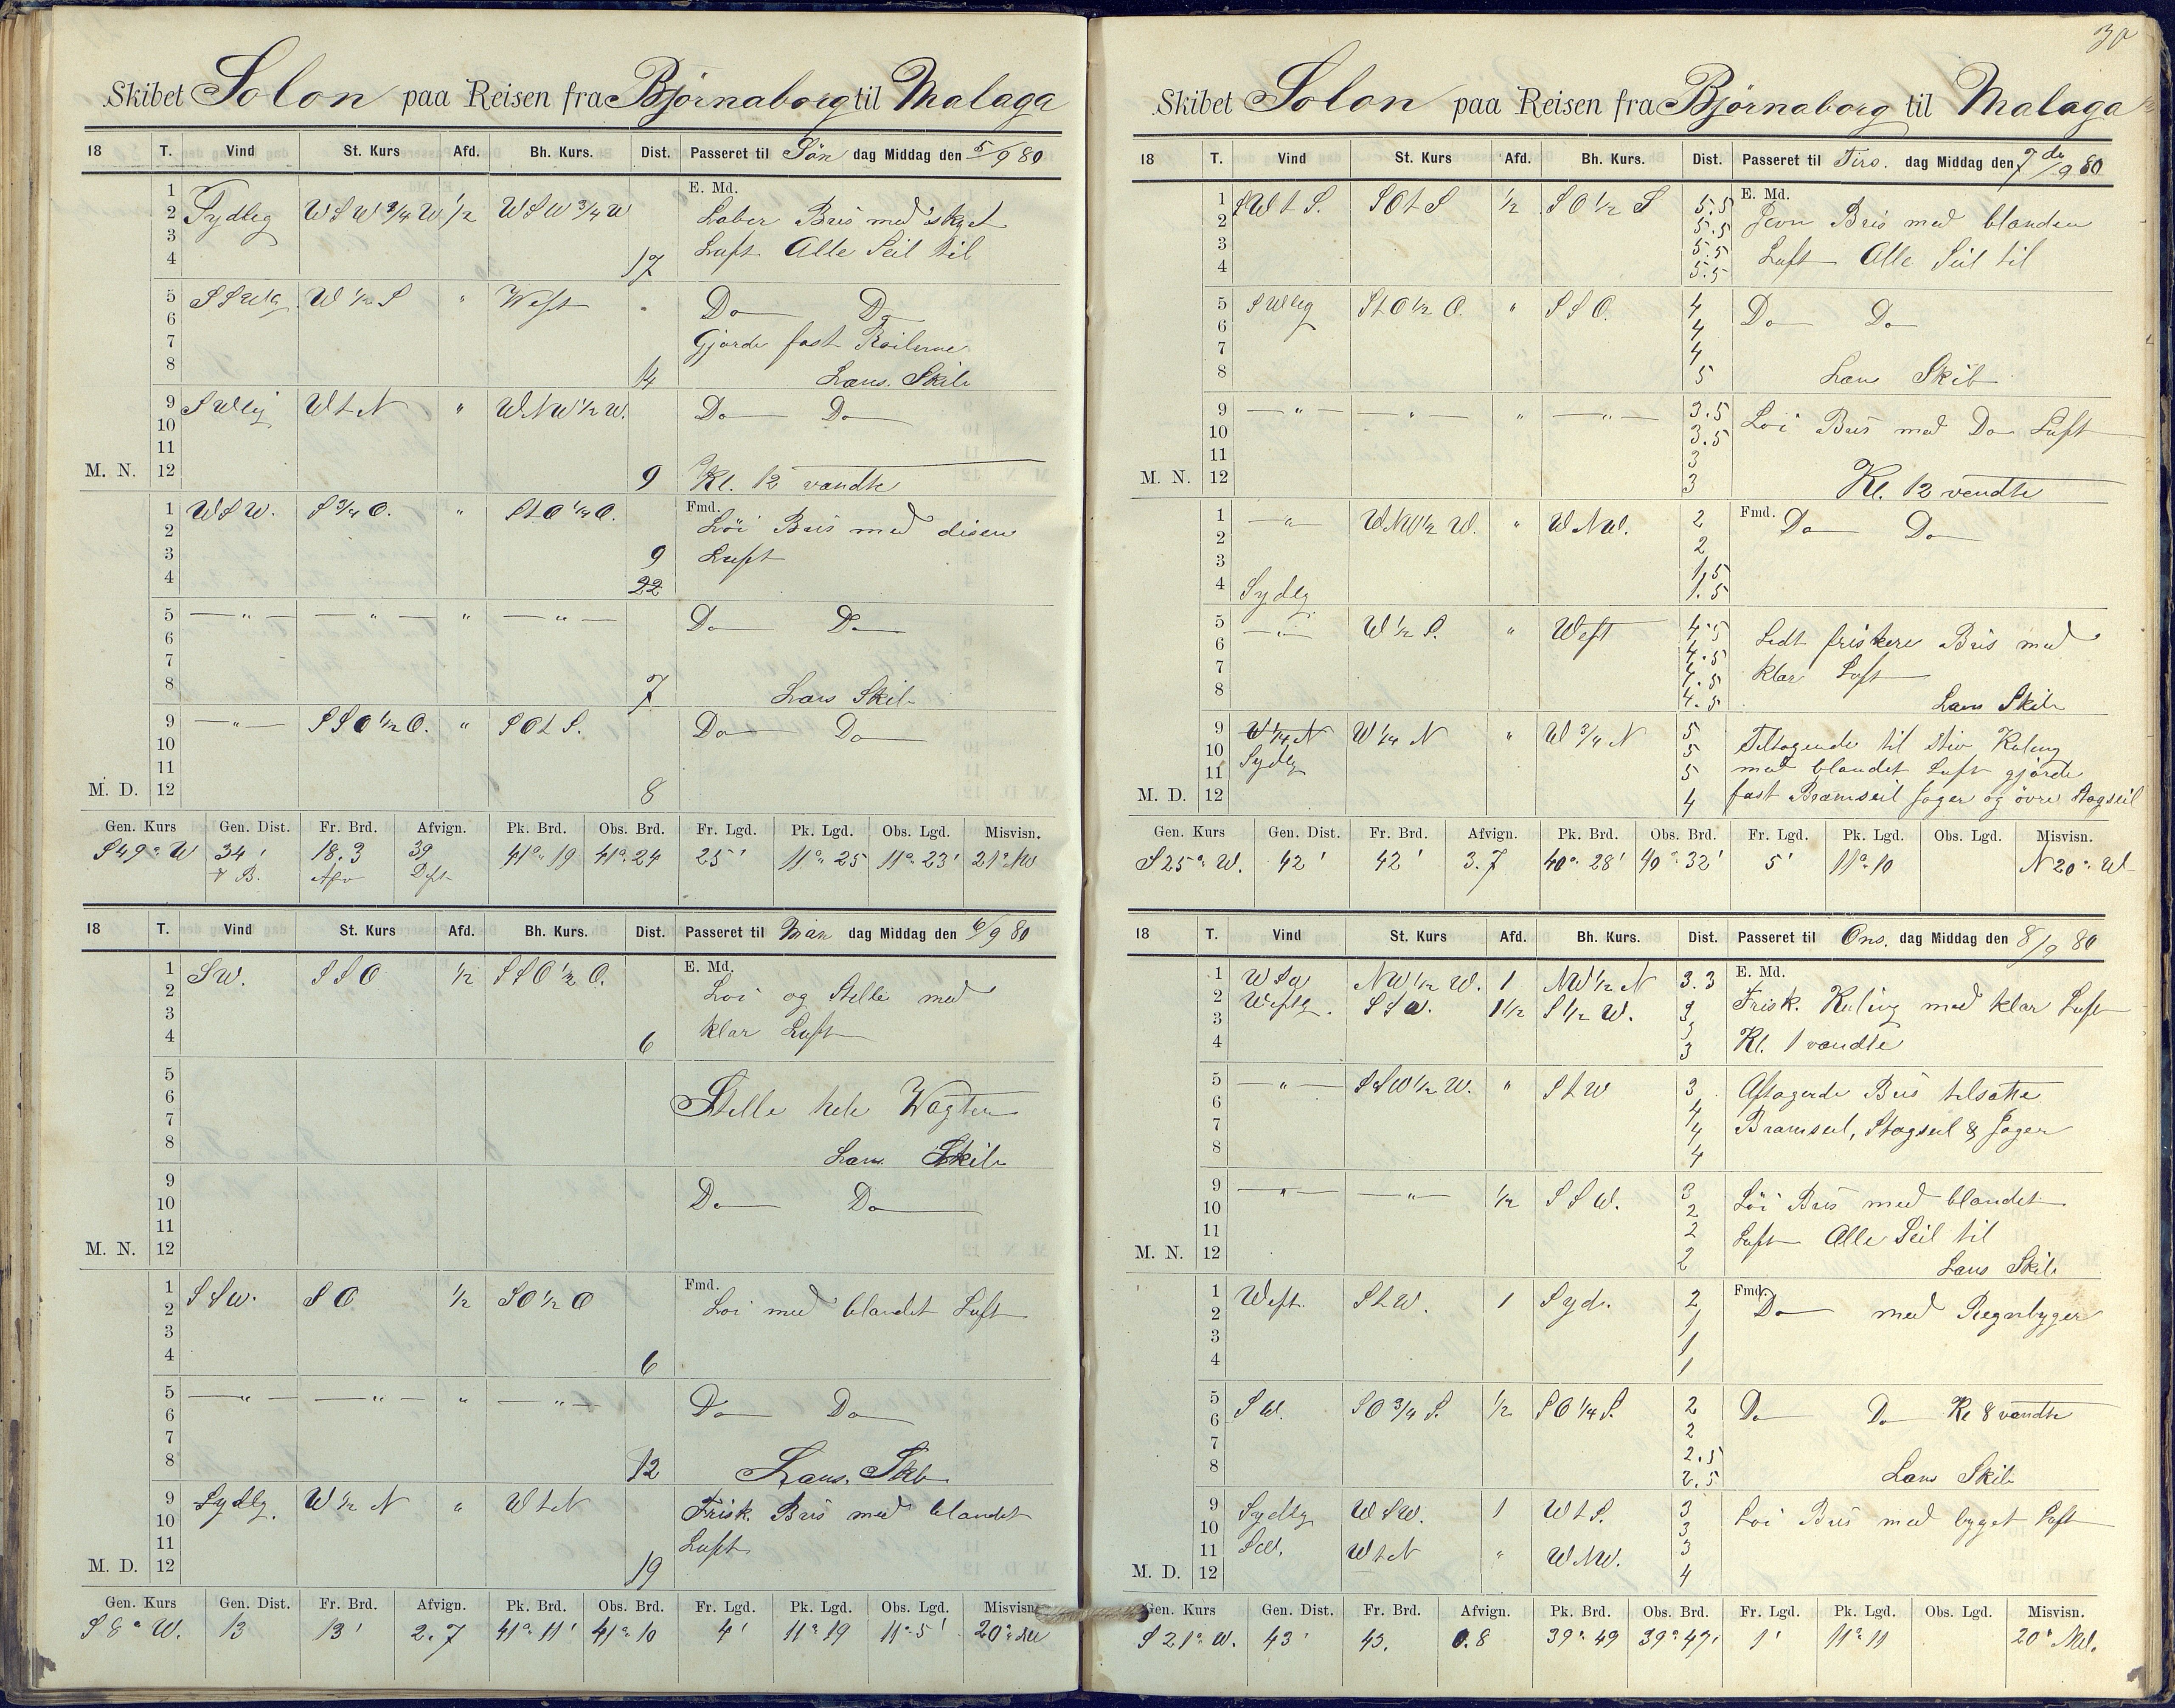 Skibet Solon paa Reisen fra Bjørnaborg til Malaga
18 T. Vind St. Kurs Afd. Bh. Kurs. Dist. Passeret til Søn dag Middag den 5/9 80
E. Md.
1 2 3 4 Sydleg WSW 3/4 W 1/2 WSW 3/4 W 17 Laber Bris med skyet
Luft Alle Seil til
5 6 7 8 W 1/2 S " West 14 Do Do
Gjorde fast Röilerne
Læns Skib
9 10 11 M. N. 12 SWlig WtN " WNW 1/2 W. 9 Do Do
Kl. 12 vendte
Fmd.
1 2 3 4 WSW. S 3/4 O. " StO 1/4 O. 9 22 Löi Bris med disen
Luft
5 6 7 8 — " — — " — " — " — 7 Do Do
Læns Skib
9 10 11 M. D. 12 — " — SSO 1/2 O. " SOtS. 8 Do Do
Gen. Kurs Gen. Dist. Fr. Brd. Afvign. Pk. Brd. Obs. Brd. Fr. Lgd. Pk. Lgd. Obs. Lgd. Misvisn.
S 49° W 34' 18.3 39 41° 19 41° 24 25' 11° 25 11° 23' 21° NW
18 T. Vind St. Kurs Afd. Bh. Kurs. Dist. Passeret til Man dag Middag den 6/9 80
E. Md.
1 2 3 4 SW. SSO 1/2 SSO 1/2 O. 6 Löi og Stille med
klar Luft
5 6 7 8 Stille hele Wagten
Læns Skib
9 10 11 M. N. 12 Do Do
Fmd.
1 2 3 4 SSW. SO 1/2 SO 1/2 O 6 Löi med blandet Luft
5 6 7 8 — " — — " — " — " — 12 Do Do
Læns Skib
9 10 11 M. D. 12 Sydlg. W 1/2 N " WtN 19 Frisk Bris med blandet
Luft
Gen. Kurs Gen. Dist. Fr. Brd. Afvign. Pk. Brd. Obs. Brd. Fr. Lgd. Pk. Lgd. Obs. Lgd. Misvisn.
S 8° W. 13 13' 2.7 41° 11' 41° 10 4' 11° 19 11° 5' 20° NW
30
Skibet Solon paa Reisen fra Bjørnaborg til Malaga
18 T. Vind St. Kurs Afd. Bh. Kurs. Dist. Passeret til Tirs. dag Middag den 7de/9 80
E. Md.
1 2 3 4 SWtS. SOtS 1/2 SO 1/2 S 5.5 5.5 5.5 5.5 Jevn Bris med blanden
Luft Alle Seil til
5 6 7 8 SWlig StO 1/2 O. " SSO. 4 4 4 5 Do Do
Læns Skib
9 10 11 M. N. 12 — " — — " — " — " — 3.5 3.5 3 3 Löi Bris med Do Luft
Kl. 12 vendte
Fmd.
1 2 3 4 — " — WNW 1/2 W. " WNW. 2 2 1.5 1.5 Do Do
Sydlg
5 6 7 8 — " — W 1/2 S. " West 4.5 4.5 4.5 4.5 Lidt friskere Bris med
klar Luft
Læns Skib
9 10 11 M. D. 12 W 1/4 N Sydlg W 1/4 N " W 3/4 N 5 5 5 4 Tiltagende til Stiv Kuling
med blandet Luft gjorde
fast Bramseil Jager og övre Stagseil
Gen. Kurs Gen. Dist. Fr. Brd. Afvign. Pk. Brd. Obs. Brd. Fr. Lgd. Pk. Lgd. Obs. Lgd. Misvisn.
S 25° W. 42' 42' 3.7 40° 28' 40° 32' 5' 11° 10 N 20° W
18 T. Vind St. Kurs Afd. Bh. Kurs. Dist. Passeret til Ons. dag Middag den 8/9 80
E. Md.
1 2 3 4 WSW NW 1/2 W. 1 NW 1/2 N 3.3
Westlg. SSW. 1 1/2 S 1/2 W. 3 3 3 Frisk Kuling med klar Luft
Kl. 1 vendte
5 6 7 8 — " — SSW 1/2 W. " StW 3 4 4 4 Aftagende Bris tilsatte
Bramseil, Stagseil & Jager
9 10 11 M. N. 12 — " — — " — 1/2 SSW. 3 2 2 2 Löi Bris med blandet
Luft Alle Seil til
Læns Skib
Fmd.
1 2 3 4 West. StW. 1 Syd. 2 1 1 1 Do med Regnbyger
5 6 7 8 SW. SO 3/4 S. 1/2 SO 1/4 S. 2 2 2.5 2.5 Do Do Kl 8 vendte
Læns Skib
9 10 11 M. D. 12 Sydlg WSW. 1 WtS. 3 3 Löi Bris med byget Luft
SW. WtN " WNW. 3 4
Gen. Kurs Gen. Dist. Fr. Brd. Afvign. Pk. Brd. Obs. Brd. Fr. Lgd. Pk. Lgd. Obs. Lgd. Misvisn.
S 21° W. 43' 43. 0.8 39° 49 39° 47' 1' 11° 11 20° NW.